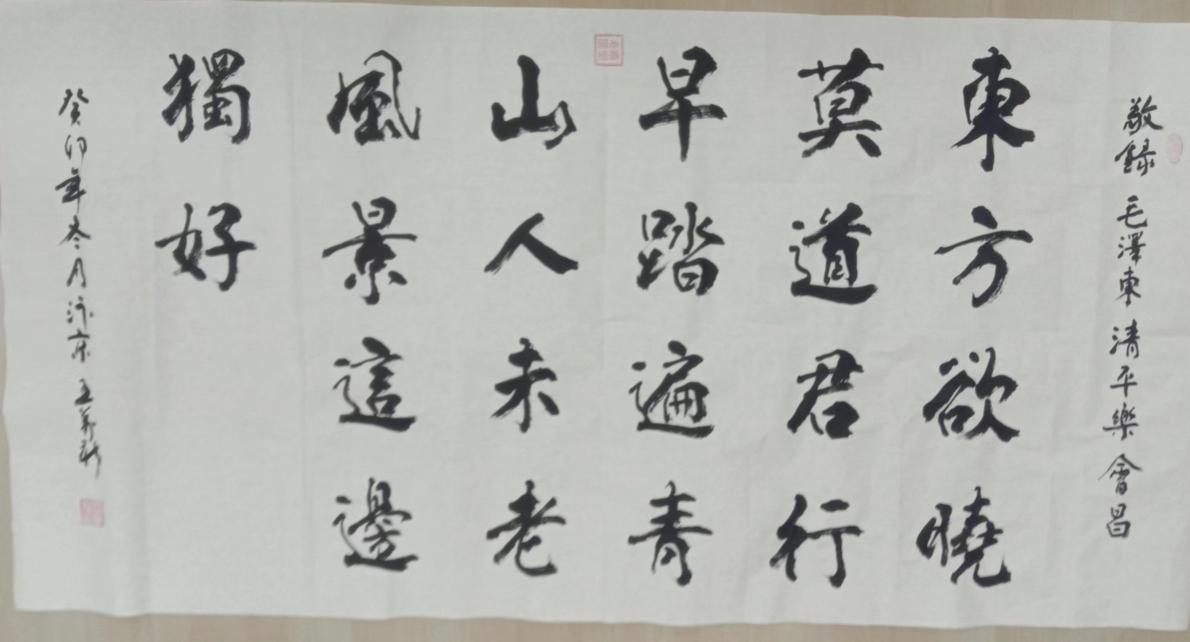 敬録毛澤東清平樂會昌
東方欲曉
莫道君行
早踏遍青
山人未老
風景這邊
獨好
癸卯年冬月汴京